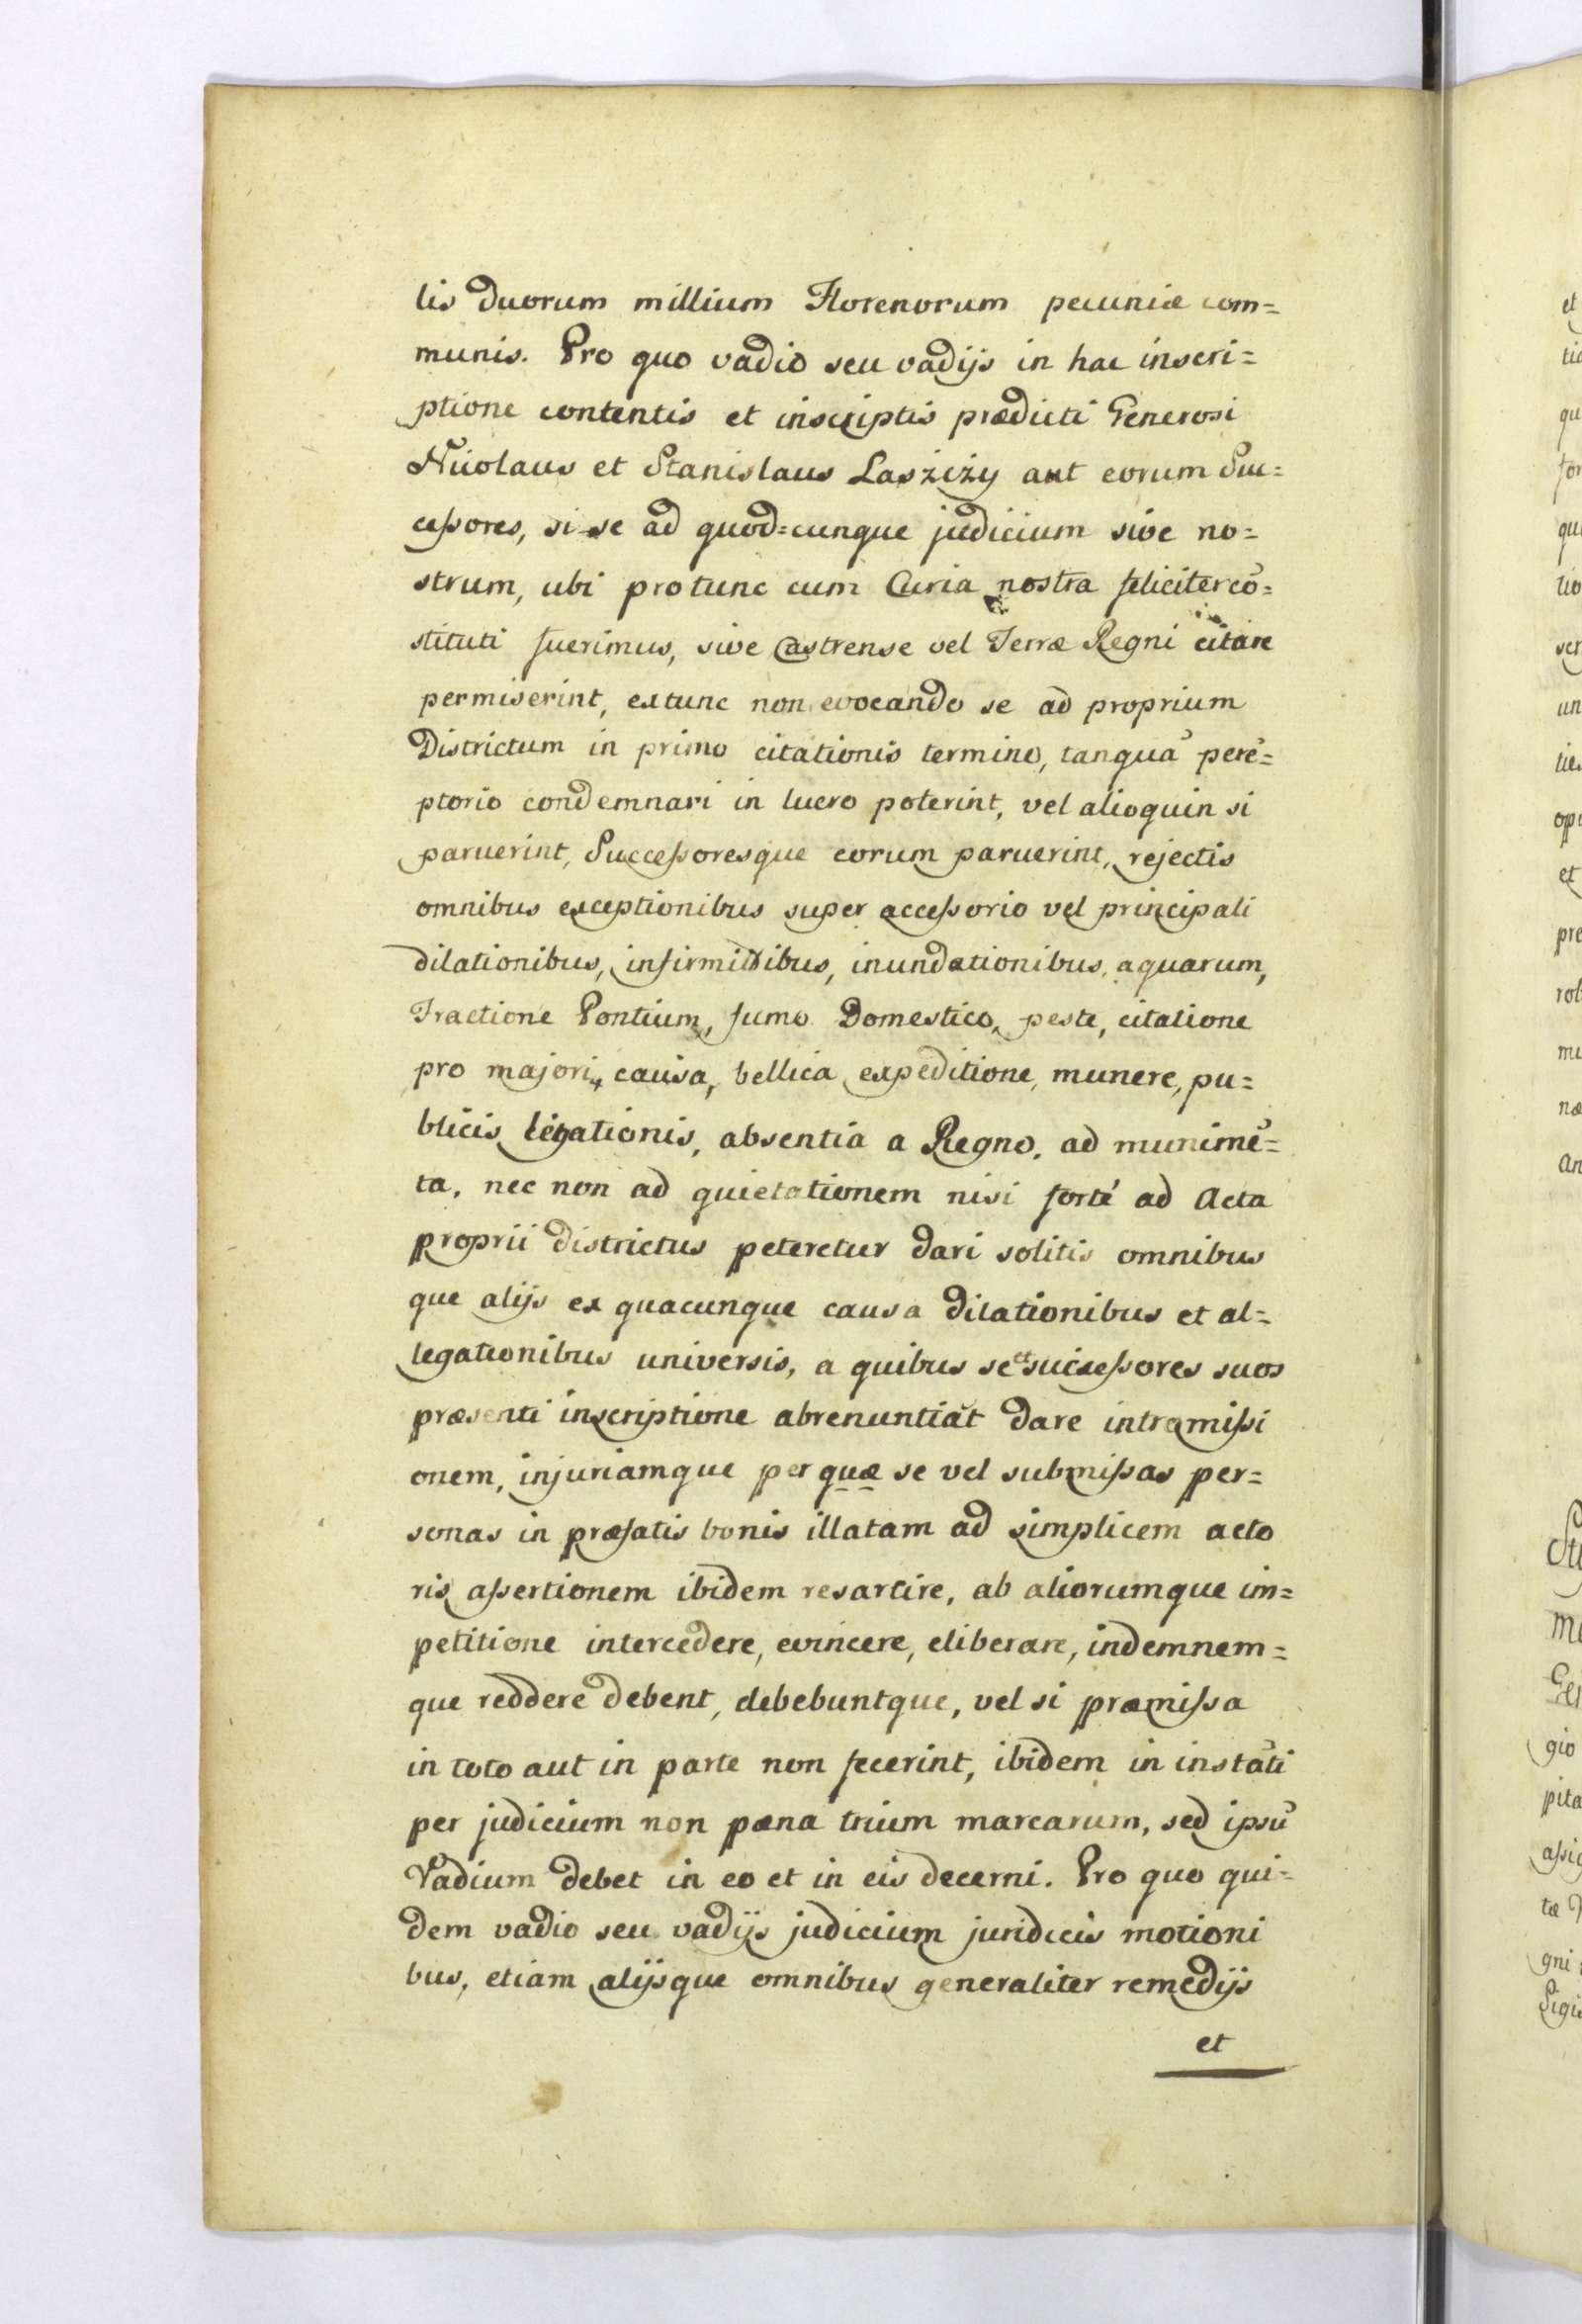 lis duorum millium Florenorum pecuniæ com=
munis. Pro quo vadio seu vadijs in hac inscri=
ptione contentis et inscriptis prædicti Generosi
Nicolaus et Stanislaus Laszizy aut eorum Suc=
cessores, si se ad quod=cunque judicium sive no=
strum, ubi pro tunc cum Curia nostra feliciter cō=
stituti fuerimus, sive Castrense vel Terræ Regni citare
permiserint, extunc non evocando se ad proprium
Districtum in primo citationis termino, tanquā perē=
ptorio condemnari in lucro poterint, vel alioquin si
paruerint, Successoresque eorum paruerint, rejectis
omnibus exceptionibus super accessorio vel principali
dilationibus, inundationibus, aquarum,
Fractione Pontium, fumo Domestico, peste, citatione
pro majori, causa, bellica expeditione, munere, pu=
blicis legationis, absentia a Regno, ad munimē=
ta, nec non ad quietationem nisi forté ad Acta
proprii districtus peteretur dari solitis omnibus
que alijs ex quacunque causa dilationibus et al=
legationibus universis, a quibus se et successores suos
præsenti inscriptione abrenuntiāt dare intromissi
onem, injuriamque per quæ se vel submissas per=
sonas in præfatis bonis illatam ad simplicem acto
ris assertionem ibidem resartire, ab aliorumque im=
petitione intercedere, evincere, eliberare, indemnem=
que reddere debent, debebuntque, vel si præmissa
in toto aut in parte non fecerint, ibidem in instāti
per judicium non pæna trium marcarum, sed ipsū
Vadium debet in eo et in eis decerni. Pro quo qui=
dem vadio seu vadijs judicium juridicis motioni
bus, etiam alijsque omnibus generaliter remedijs
et